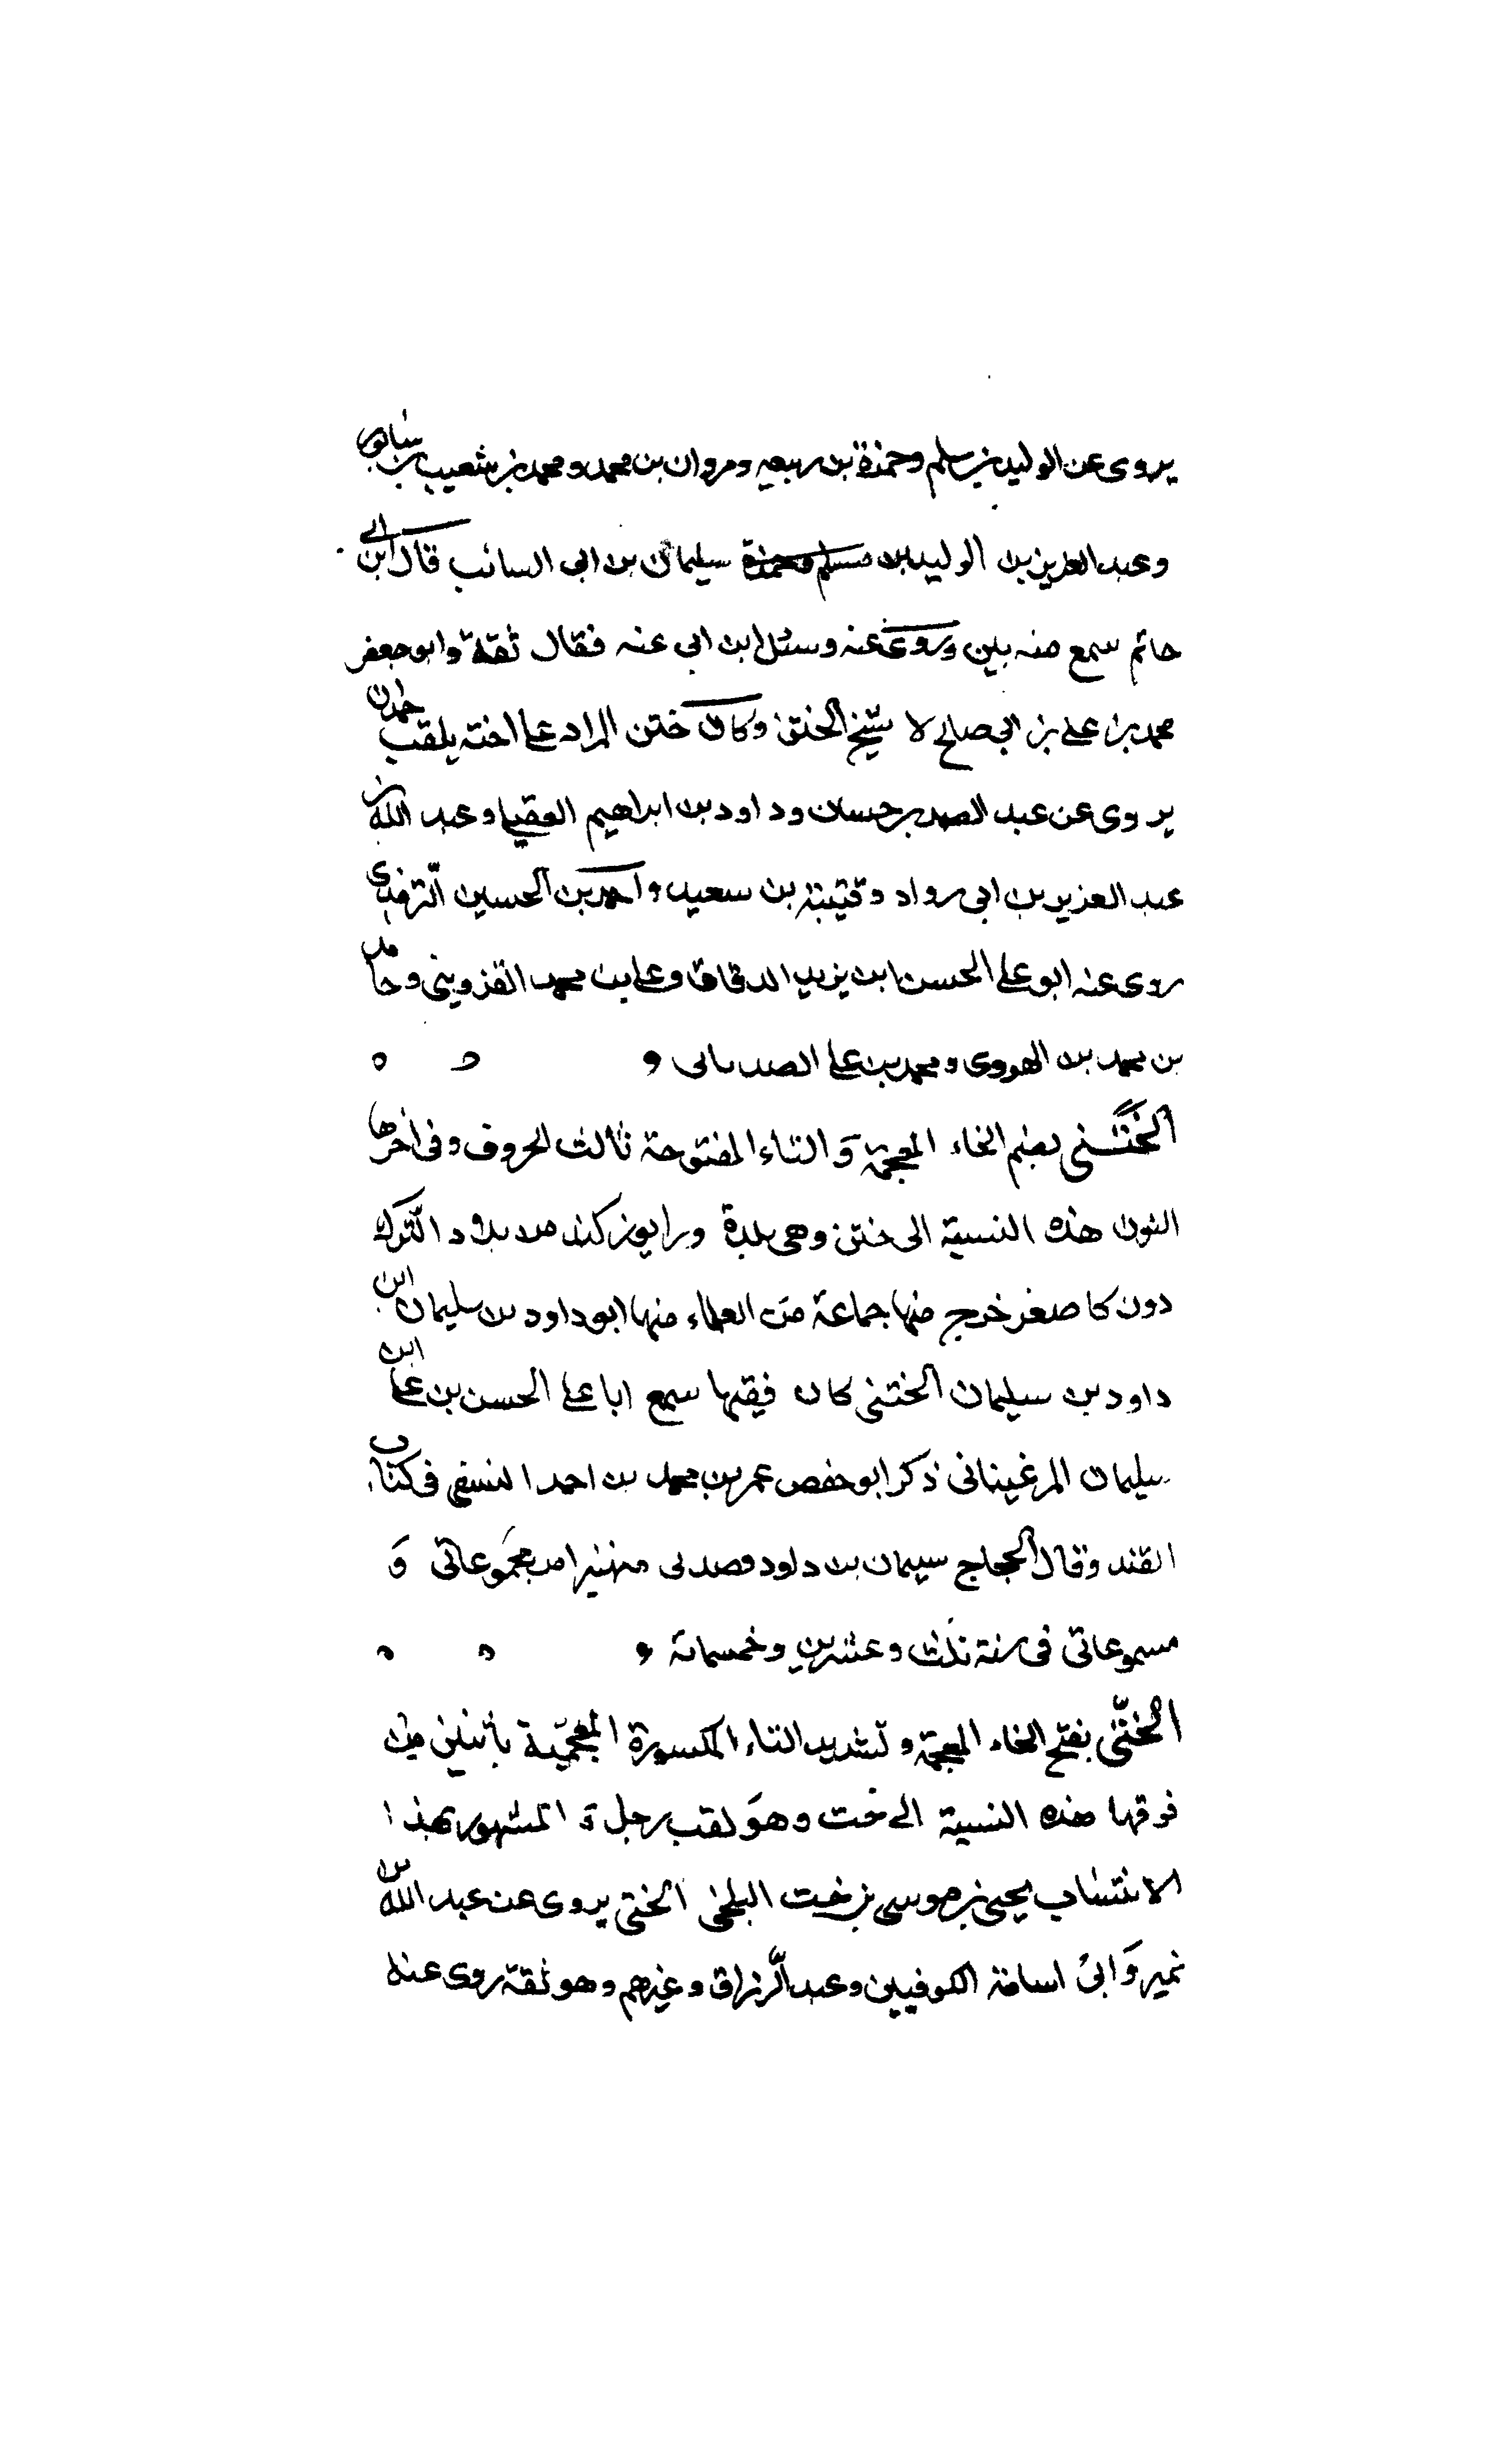 يروى عن الوليد بن سلم وحمزة بن ربيعه ومروان بن محمد ومحمد بن شعيب بن شابور
وعبد العزيز بن الوليد بن مسلم وحمزة سليمان بن ابى السائب قال ابن ابى
حاتم سمع منه بين وروى عنه وسئل ابن ابى عنه فقال ثقة وابو جعفر
محمد بن على بن ابى صالح لا شيخ الختن وكان ختن المراد على اخته يلقب حمدان
يروى عن عبد الصمد بن حسان وداود بن ابراهيم العقيلى وعبد الله بن
عبد العزيز بن ابى رواد وقتيبة بن سعيد واحمد بن الحسين الترمذى
روى عنه ابو على الحسن ابن يزيد الدقاق وعلى بن محمد القزوينى وحامد
بن محمد بن الهروى ومحمد بن على الصدىاىى
الخُتَنى بضم الخاء المعجمة وَالتاء المفتوحة ثالث الحروف وفى اخرها
النون هذه النسبة الى ختن وهى بلدة ورا يوزكند من بلاد التّرك
دون كاصغر خرج منها جماعة من العلماء منها ابو داود بن سليمان ابن
داود بن سليمان الختنى كان فقيها سمع ابا على الحسن بن على ابن
سليمان المرغينانى ذكر ابو حفص عمر بن محمد بن احمد النسفى فى كتاب
القند وقال الحجاج سيمان بن داود قصدنى منهنيرا مجموعاتى وَ
مسموعاتى فى سنة ثلث وعشرين وخمسمائة
الختّى بفتح الخاء المعجمة وتشديد التاء المكسورة المعجمية باثنين من
فوقها هذه النسبة الى خت وهوَ لقب رجل المشهور بهذا
الانتساب يحيى بن موسى بن خت البلخى الختى يروى عن عبد اللّه بن
نمير وَابى اسامة الكوفيين وعبد الّرزاق وغيرهم وهو ثقة روى عنه